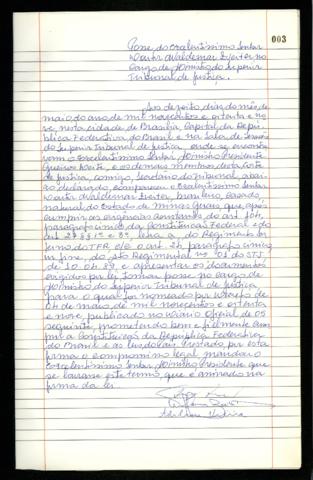 003
Posse do Excelentíssimo Senhor
Doutor Waldemar Zveiter no
Cargo de Ministro do Superior
Tribunal de Justiça.
Aos dezoito dias do mês de
maio do ano de mil novecentos e oitenta e no
ve, nesta cidade de Brasília, Capital da Repú-
blica Federativa do Brasil e na Sala de Sessões
do Superior Tribunal de Justiça, onde se encontra
vam o Excelentíssimo Senhor Ministro Presidente
Gueiros Leite, e os demais ministros desta Corte
de Justiça, comigo, Secretário do Tribunal, abai
xo declarado, compareceu o Excelentíssimo Senhor
Doutor Waldemar Zveiter, brasileiro, casado,
natural do Estado de Minas Gerais, que, após
cumprir as exigências constantes do art. 104,
parágrafo único, da Constituição Federal e do
art. 27 §§ 1º e 3º, letra a, do Regimento In
terno do TFR, c/c o art. 24, parágrafo único,
in fine, do Ato Regimental nº 01 do STJ,
de 10.04.89, e apresentar os documentos
exigidos por lei, tomou posse no cargo de
Ministro do Superior Tribunal de Justiça,
para o qual foi nomeado por Decreto de
04 de maio de mil novecentos e oitenta
e nove, publicado no Diário Oficial de 05
seguinte, prometendo bem e fielmente cum
prir a Constituição da República Federativa
do Brasil e as leis do País. Prestado por esta
forma o compromisso legal, mandou o
Excelentíssimo Senhor Ministro Presidente que
se lavrasse este termo, que é assinado na
forma da lei.